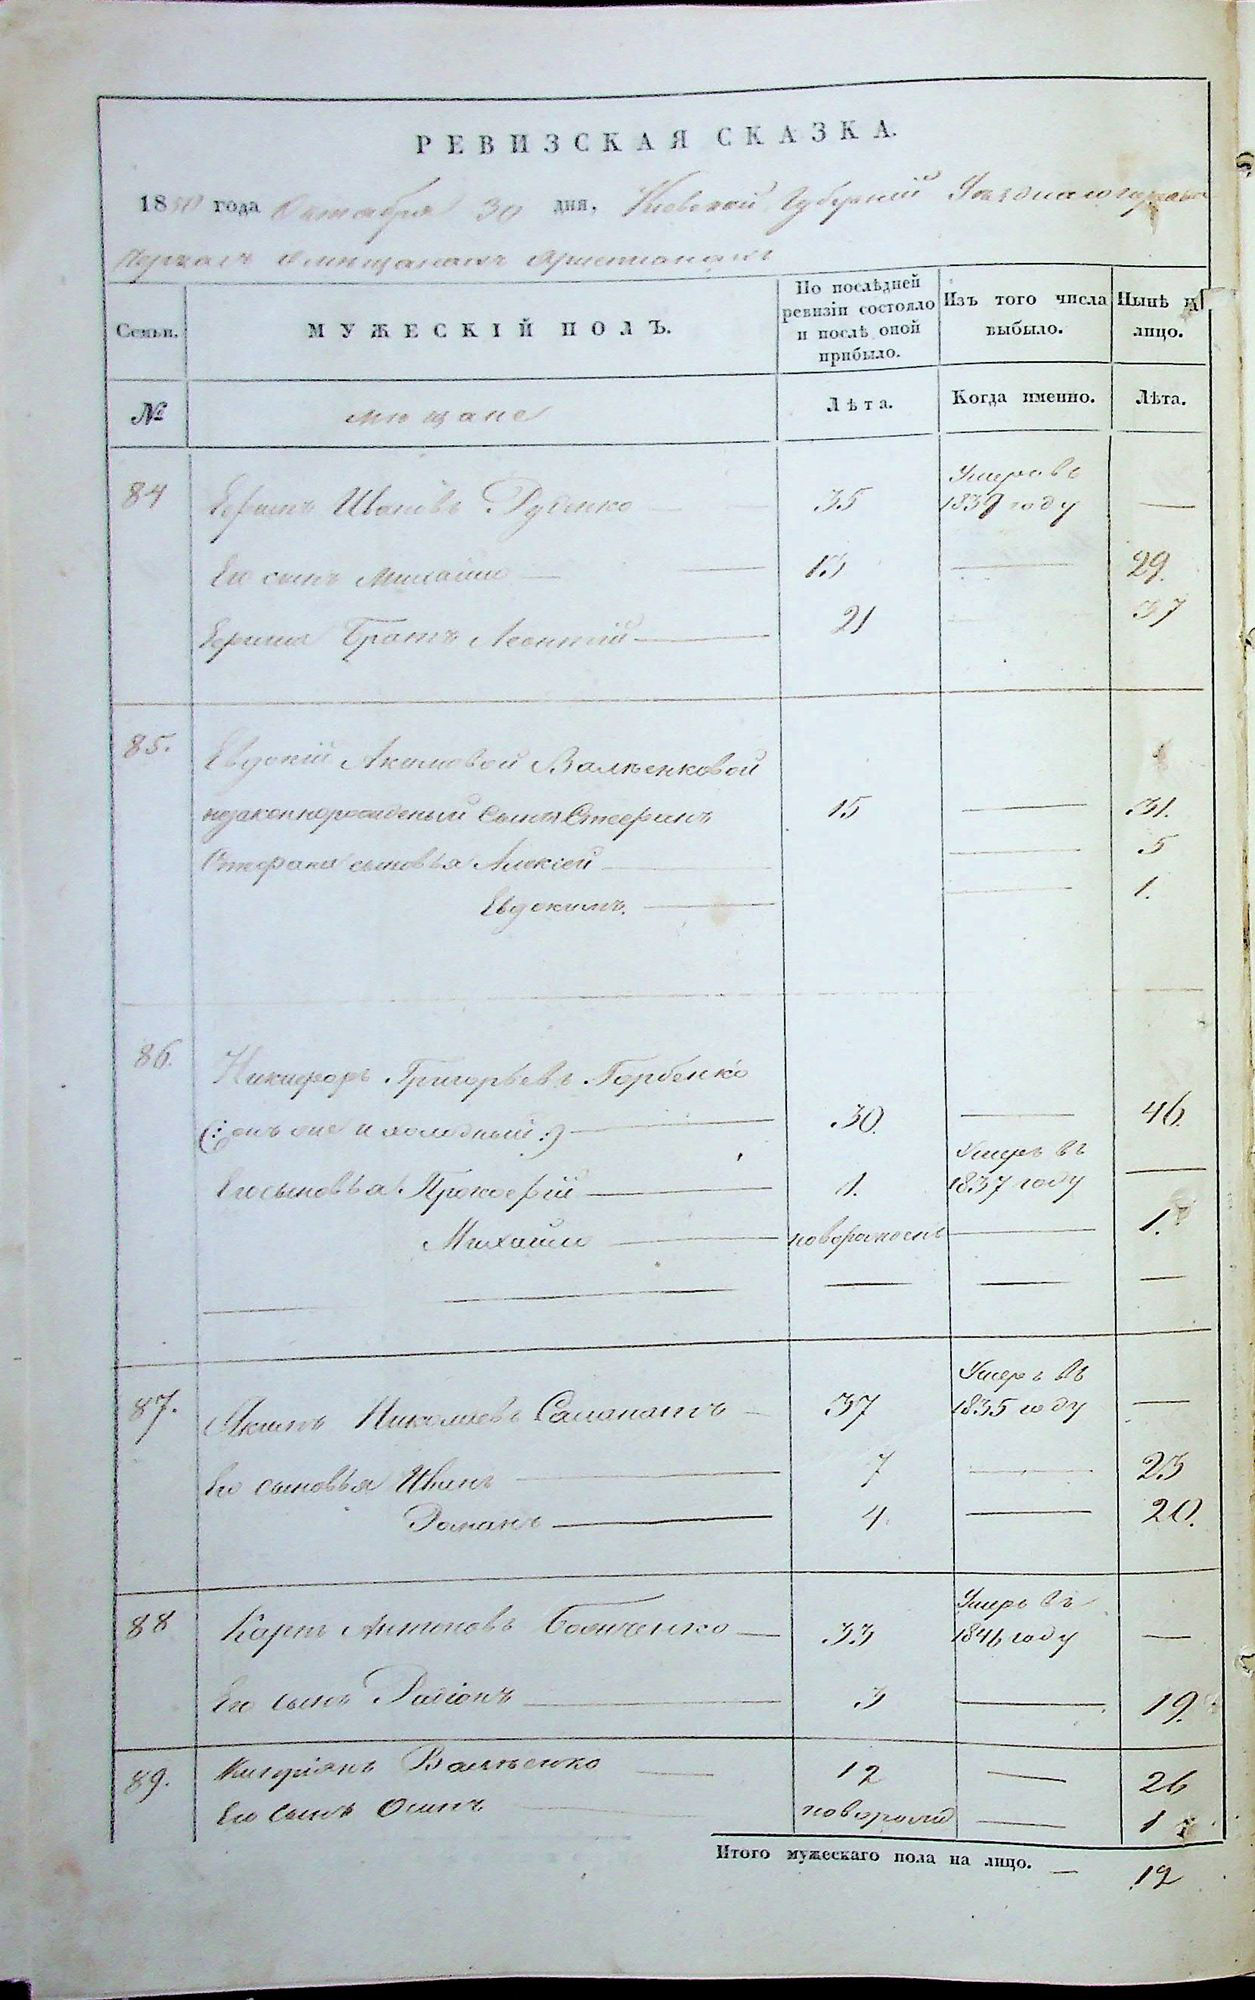 РЕВИЗСКАЯ СКАЗКА.
1850 года Октября 30 дня, Киевской Губерніи Уѣзднаго города
мѣщанахъ христіанахъ
Семьи. МУЖЕСКІЙ ПОЛЪ. По послѣдней ревизіи состояло и послѣ оной прибыло. Изъ того числа выбыло. Нынѣ на лицо.
№ мѣщане Лѣта. Когда именно. Лѣта.
84 Ефимъ Ивановъ Рубенко — 35 Умеръ въ 1839 году —
Его сынъ Михайло — 13 — 29.
Ефима Братъ Леонтій — 21 — 37
85. Евдокіи Акимовой Валѣенковой
незаконнорожденый сынъ Стефанъ 15 — 31.
Стефана сыновья Алексей — — 5
Евдокимъ. — — 1.
86. Никифоръ Григорьевъ Горбенко
(:онъ же и :) — 30. — 46.
Его сыновья Прокофій — 1. Умеръ въ 1837 году —
Михайло — новорожденъ — 1.
— — — — —
87. Якимъ Николаевъ Саланатъ — 37 Умеръ въ 1835 году —
Его сыновья Иванъ — 7 — 23
Романъ — 4 — 20.
88 Карпъ Антоновъ — 33 Умеръ въ 1846 году —
Его сынъ Родіонъ — 3 — 19.
89. Валѣенко — 12 — 26
Его сынъ Осипъ — поворожд — 1
Итого мужескаго пола на лицо. — 12